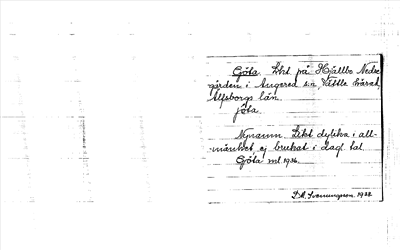 Göta. Lkt på Hjällbo Nedre-
gården i Angered s:n, Vättle härad,
Älfsborgs län.
Jöta.
Nynamn. Likt dylika i all-
mänhet, ej brukat i dagl. tal.
Göta ml 1936.
D. A. Svenningsson. 1933